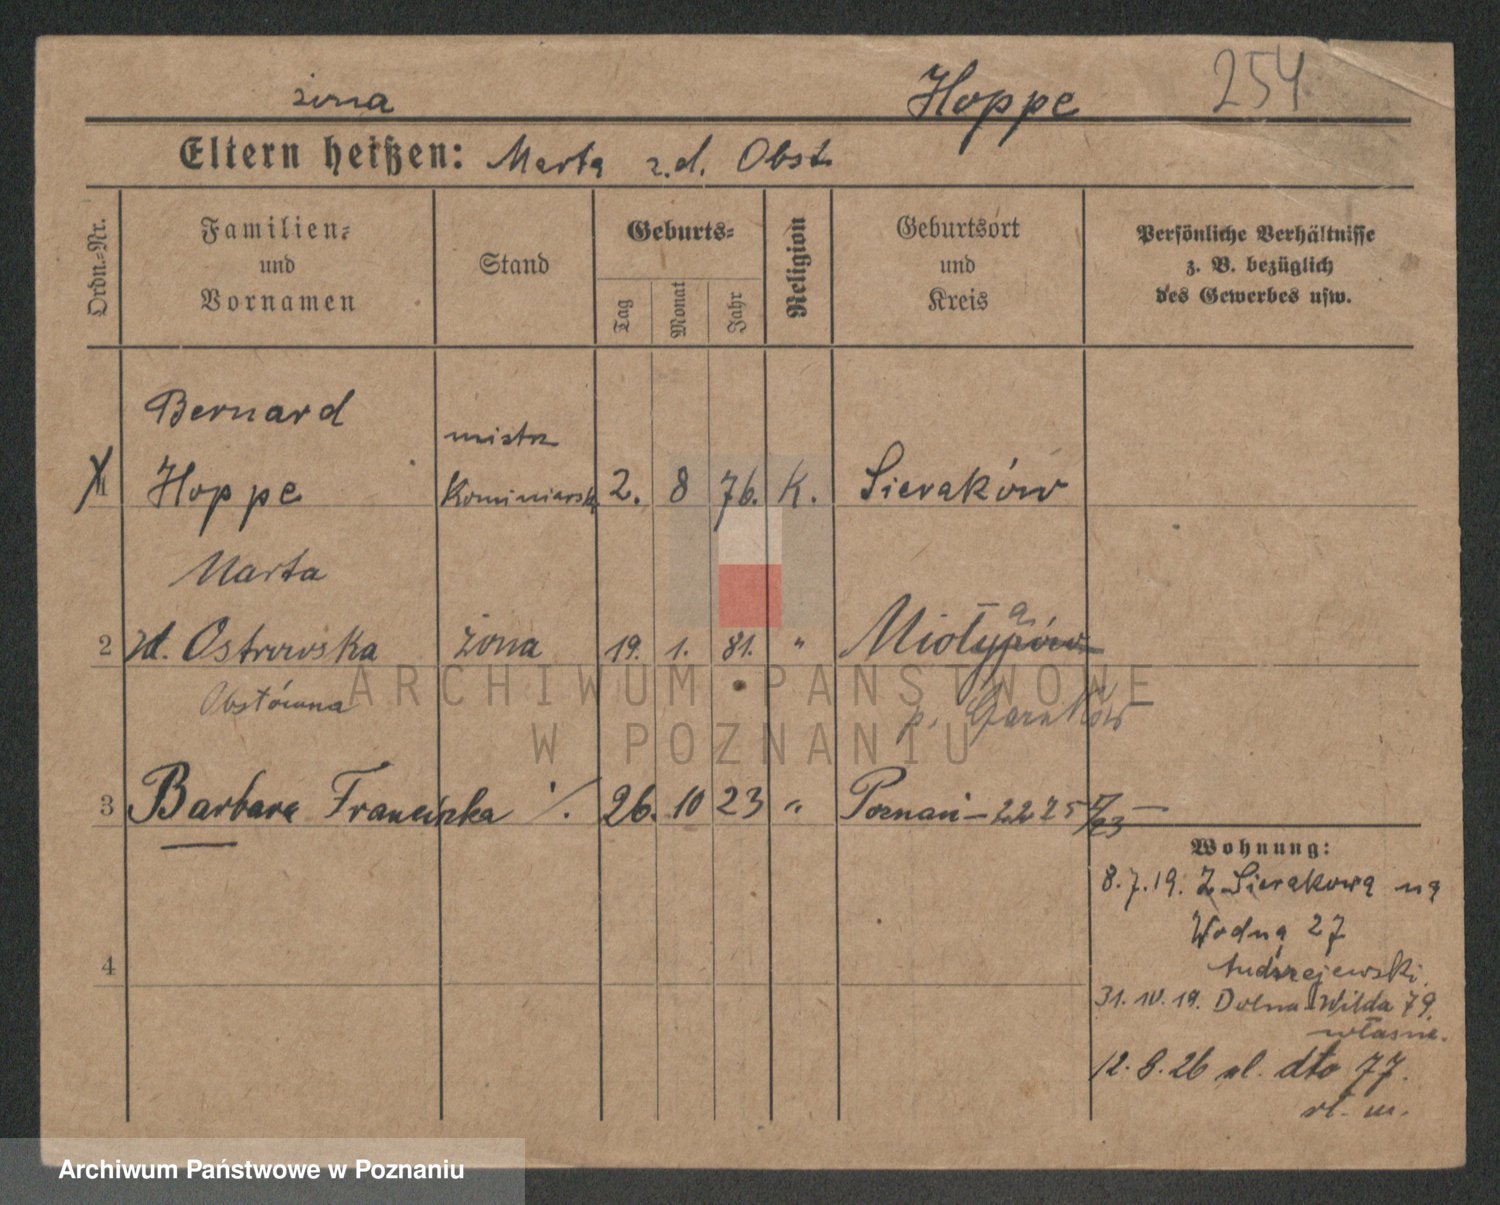 żona Hoppe 254
Eltern heißen: Marta z.d. Obst
Ordn.-Nr.
Familien-
und
Vornamen
Stand
Geburts-
Tag
Monat
Jahr
Religion
Geburtsort
und
Kreis
Persönliche Verhältnisse
z. B. bezüglich
des Gewerbes usw.
Bernard
mistrz
1 Hoppe Kominiarski 2. 8 76. K. Sieraków
Marta
2 zd. Ostrowska żona 19. 1. 81. " Miotypów
a
Obstówna p. Czarnków
3 Barbara Franciszka ·/. 26. 10 23 " Poznań - 2225 V/23 -
Wohnung:
8.7.19. Z Sierakowa na
Wodna 27
Andrzejewski
4
31. 10. 19. Dolna Wilda 79.
własne.
12. 8. 26 ul. dto 77.
w. m.
ARCHIWUM PAŃSTWOWE
W POZNANIU
Archiwum Państwowe w Poznaniu